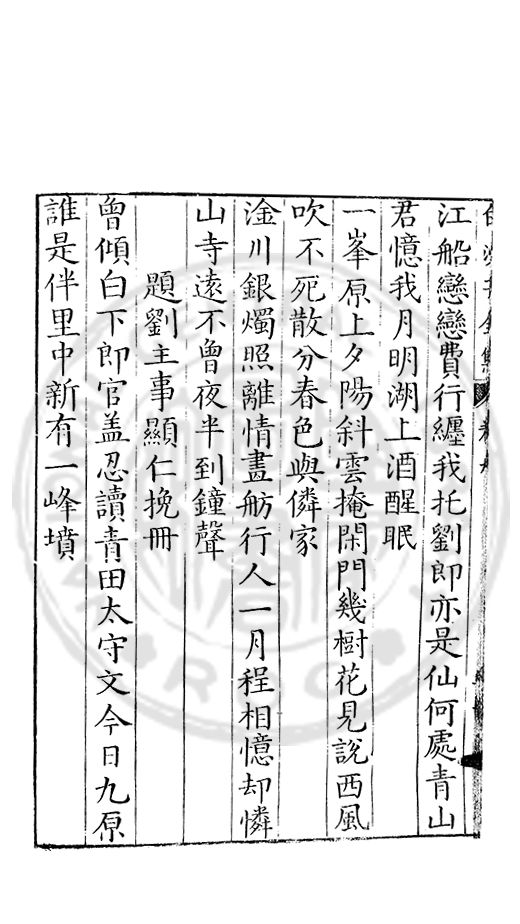 江船戀戀費行纒我托劉郎亦是仙何處青山
君憶我月明湖上酒醒眠
一峯原上夕陽斜雲掩閑門幾樹花見說西風
吹不死散分春色與鄰家
淦川銀燭照離情畫舫行人一月程相憶却憐
山寺遠不曾夜半到鐘聲
題劉主事顯仁挽冊
曾傾白下郎官盖忍讀青田太守文今日九原
誰是伴里中新有一峰墳